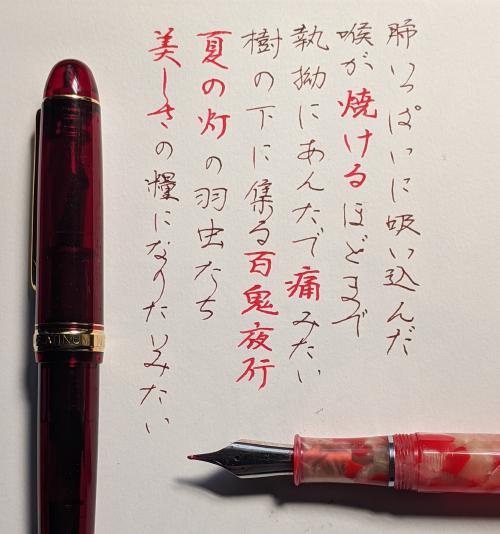 肺いっぱいに吸い込んだ
喉が焼けるほどまで
執拗にあんたで痛みたい
樹の下に集る百鬼夜行
夏の灯の羽虫たち
美しさの糧になりたいみたい
PLATINUM